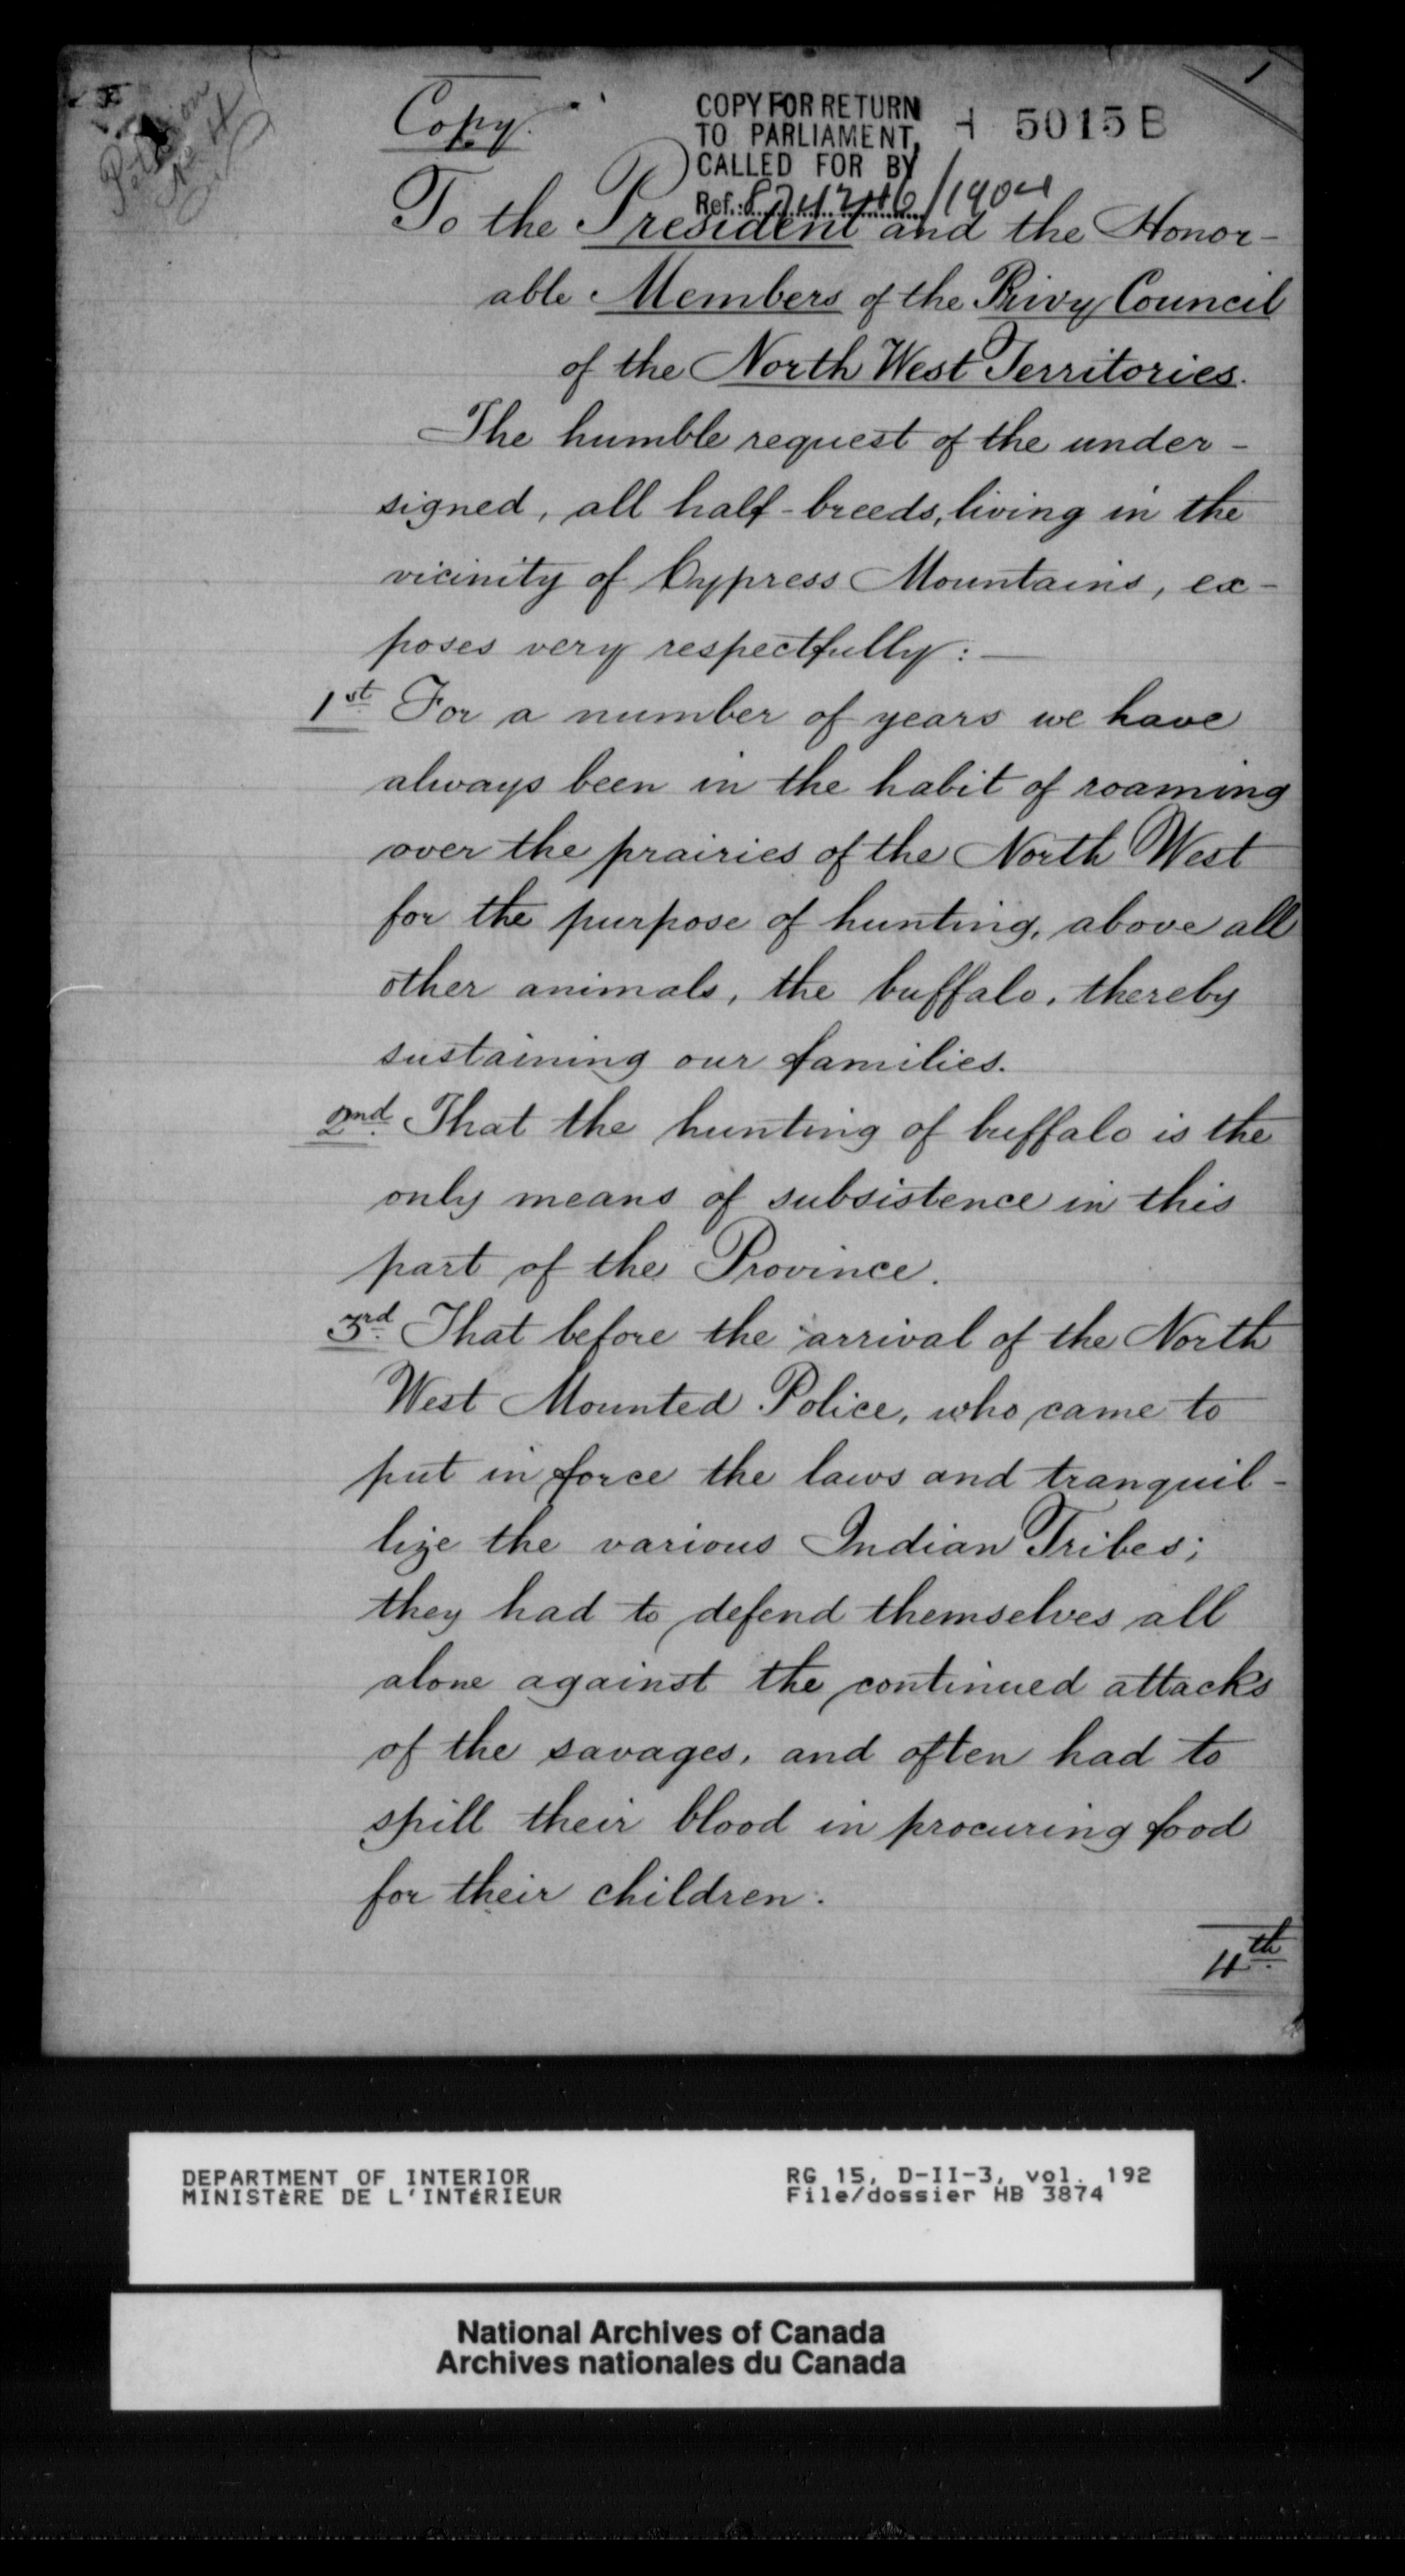 Copy.
COPY FOR RETURN
TO PARLIAMENT,
CALLED FOR BY
Ref.: /1904
5015 B
1
To the President and the Honor-
able Members of the Privy Council
of the North West Territories.
The humble request of the under-
signed, all half-breeds, living in the
vicinity of Cypress Mountains, ex-
poses very respectfully:—
1st. For a number of years we have
always been in the habit of roaming
over the prairies of the North West
for the purpose of hunting, above all
other animals, the buffalo, thereby
sustaining our families.
2nd. That the hunting of buffalo is the
only means of subsistence in this
part of the Province.
3rd. That before the arrival of the North
West Mounted Police, who came to
put in force the laws and tranquil-
lize the various Indian Tribes;
they had to defend themselves all
alone against the continued attacks
of the savages, and often had to
spill their blood in procuring food
for their children.
4th.
DEPARTMENT OF INTERIOR
MINISTÈRE DE L'INTÉRIEUR
RG 15, D-II-3, vol. 192
File/dossier HB 3874
National Archives of Canada
Archives nationales du Canada